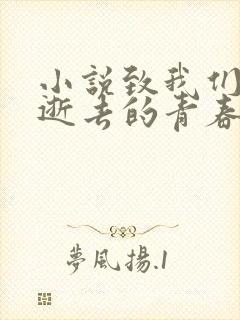 小説致我们
逝去的青春
夢風揚.1